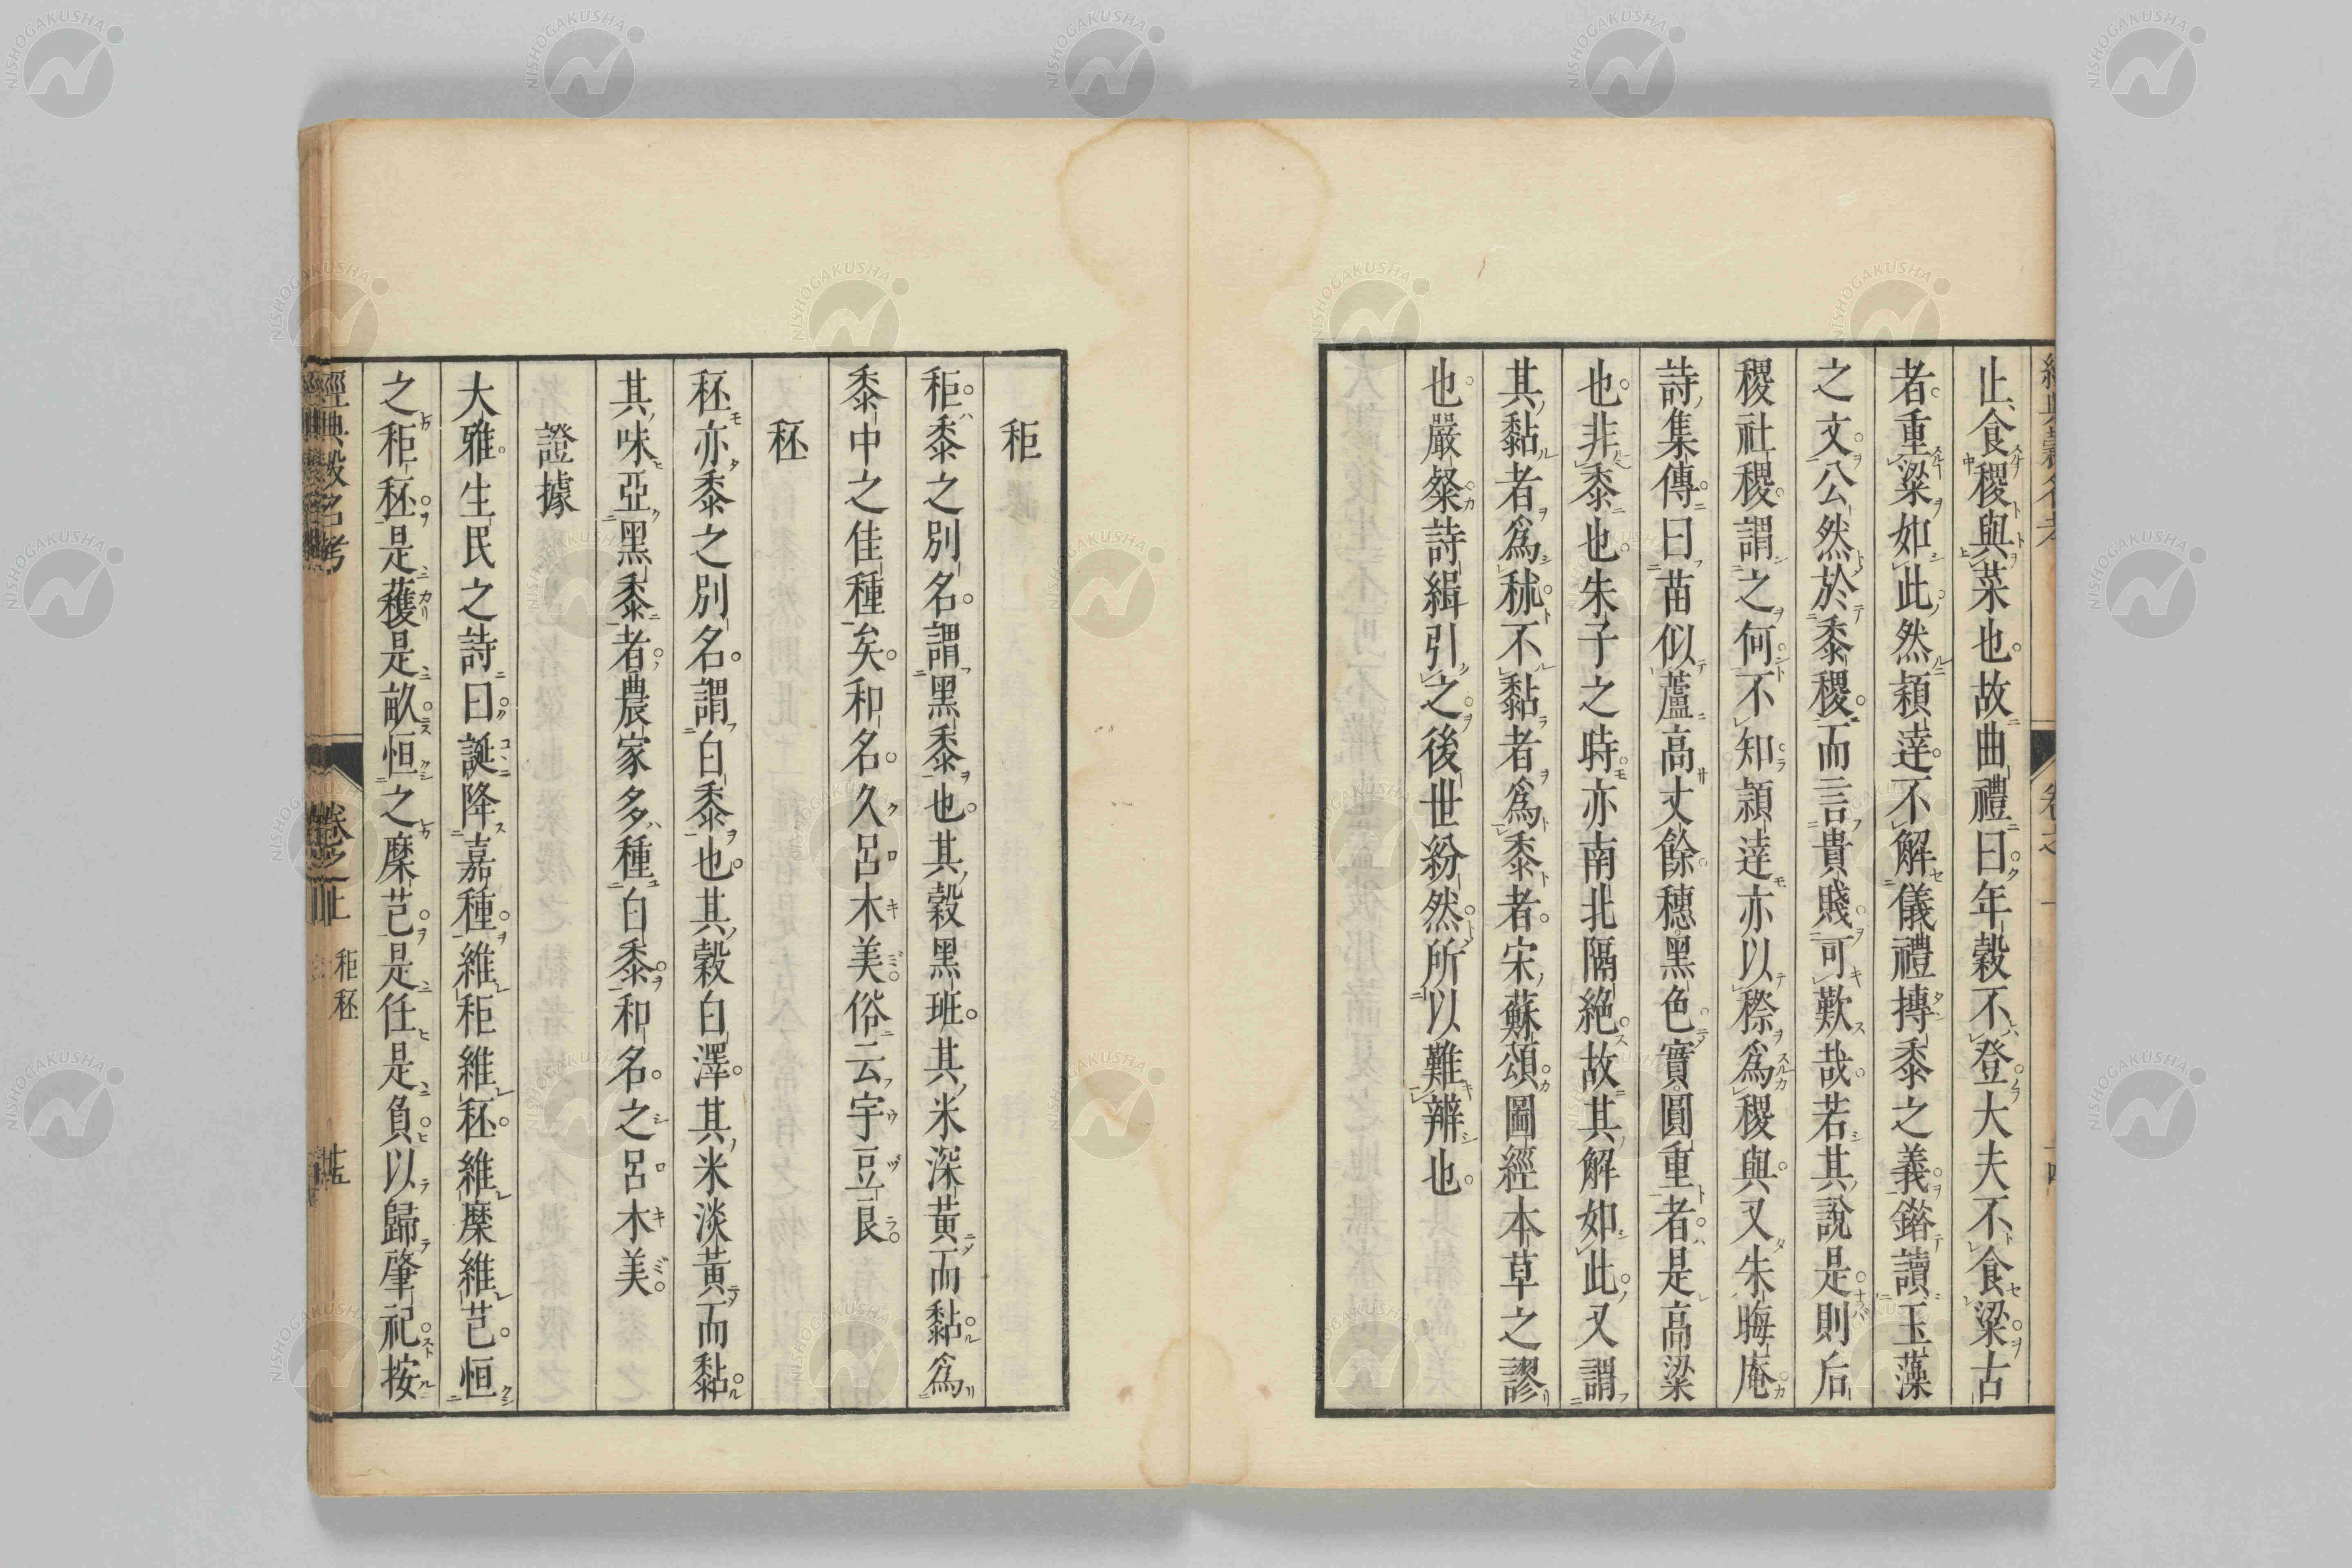 止食稷與菜也故曲禮曰年穀不登大夫不食梁古
者重粱如此然穎達不解儀禮摶黍之義鎦讀玉藻
之文公然於黍稷而言貴賤可歎哉若其說是則后
稷社稷謂之何不知頴達亦以穄爲稷與又朱晦庵
詩集傳曰苗似蘆高丈餘穗黑色實圓重者是高粱
也非黍也朱子之時亦南北隔絶故其解如此又謂
其黏者爲秫不黏者爲黍者宋蘇頌圖經本草之謬
也嚴粲詩緝引之後世紛然所以難辨也
秬
秬黍之別名謂黑黍也其穀黑班其米深黃而黏爲
黍中之佳種矣和名久呂木美俗云宇豆良
秠
秠亦黍之別名謂白黍也其穀白澤其米淡黃而黏
其味亞黑黍者農家多種白黍和名之呂木美
證據
大雅生民之詩曰誕降嘉種維秬維秠維穈維芑恒
之秬秠是穫是畝恒之穈芑是任是負以歸肇祀按
經典穀名考 卷之上 秬秠 十五
NISHOGAKUSHA